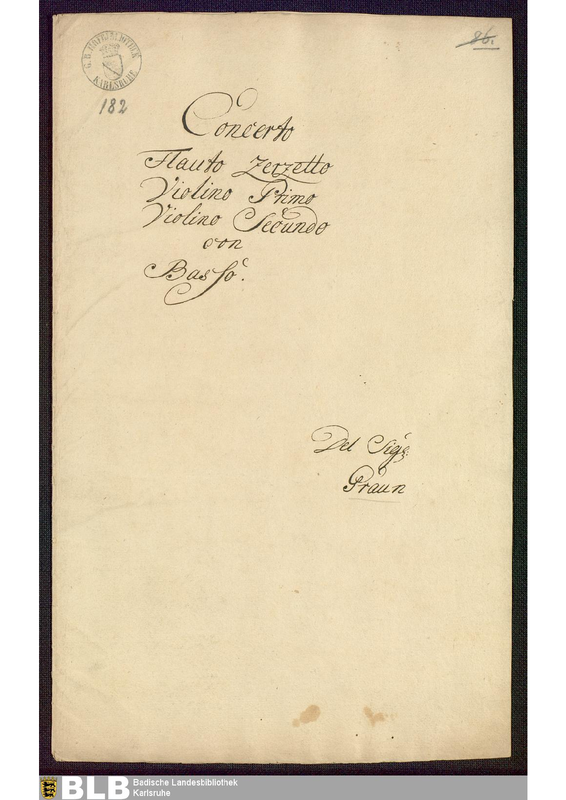 86.
G. B. HOFBIBLIOTHEK
KARLSRUHE
182
Concerto
Flauto Zerzetto
Violino Primo
Violino Secundo
con
Basso.
Del Sigr
Graun
BLB
Badische Landesbibliothek
Karlsruhe